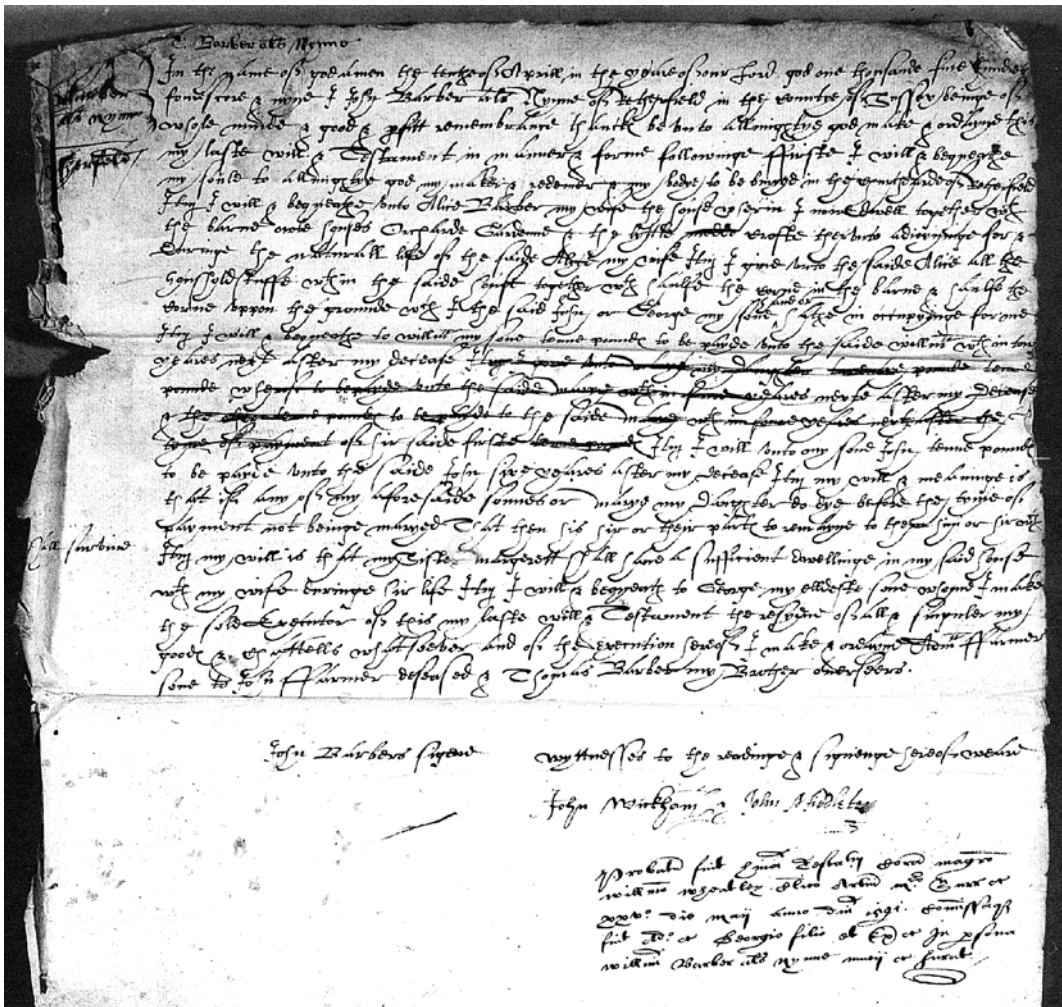 T. Barber als Nynne
Barber
als Nynne
In the name of god amen the tenthe of Aprill in the yeare of our Lord god one thousande five hundrez
fourescore & nyne I John Barber als Nynne of Retherfield in the countie of Sussex beinge of
whole minde & good & pfitt remembrance thanckes be unto allmightye god make & ordayne this
my laste will & Testament in manner & forme followinge ffirste I will & bequeathe
my soule to allmightye god my maker & redemer & my bodye to be buryed in the churcheyarde of Retherfield
Itm I will & bequeathe unto Alice Barber my wife the house wherin I nowe dwell together wth
the barne owte houses Orcharde Gardenne & the lyttle crofte therunto adioyninge for &
duringe the naturall life of the saide Alyce my wife Itm I give unto the saide Alice all the
houshold stuffe wthin the saide house together wth haulfe the corne in the barne & haulfe the
corne uppon the grounde wch I the said John or George my sone hathe in occupyinge for me
Itm I will & bequeathe to willm my sone tenne poundes to be payde unto the saide willm wthin
yeares next after my decease
pounde wherof to be payde unto the saide marye wthin yeares nexte after my decease
& the poundes to be payde to the saide wthin foure yeares next after the
tyme of payment of hir saide firste Itm I will unto my sone John tenne poundes
to be payde unto the saide John sixe yeares after my decease Itm my will & meaninge is
that if any of my aforesaide sonnes or marye my daughter do dye before the tyme of
payment not beinge maryed That then his hir or their parte to remayne to them him or hir wch
shall survive
Itm my will is that my Sister margerett shall have a sufficient dwellinge in my said house
wth my wife duringe hir life Itm I will & bequeath to George my elldeste sone whome I make
the sole Executor of this my laste will & Testament the resydue of all & singuler my
goodes & Chattells whatsoever and of the execution hereof I make & ordayne ffarmer
sone to John ffarmer deseased & Thomas Barber my Brother overseers.
John Barbers signe
wyttnesses to the readinge & signenge hereof weare
John Wickham & John Middleton
Probatu fuit Testam coram magro
willmo wheatley
xxvo die maii anno dni 1591
fuit Georgio filio et Ex in psona
willmi Barber als Nynne